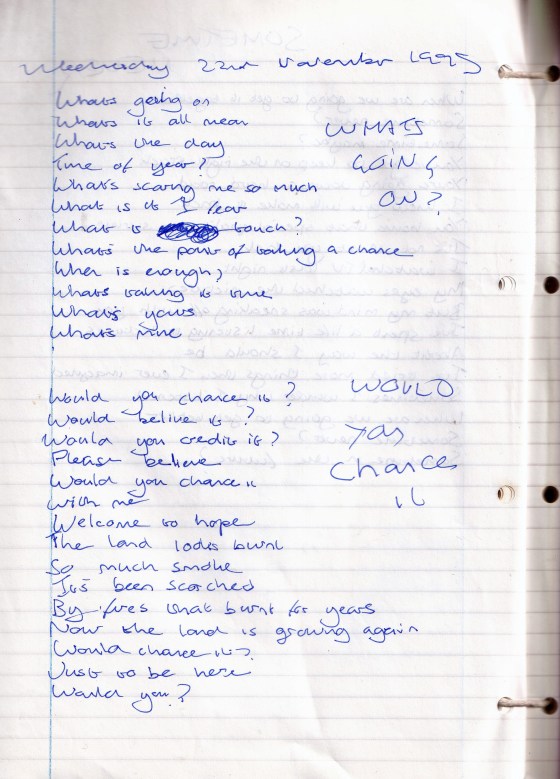 Wednesday 22nd November 1995
Whats going on
Whats it all mean
Whats the day
Time of year?
What's scaring me so much
What is it I fear
What is touch?
Whats the point of taking a chance
When is enough,
Whats taking it time
What's yours
Whats mine
WHATS
GOING
ON?
Would you chance it?
Would belive it?
Would you credit it?
Please believe
Would you chance it
With me
Welcome to hope
The land looks burnt
So much smoke
Its been scorched
By fires that burnt for years
Now the land is growing again
Would chance it?
Just to be here
Would you?
WOULD
you
Chance
it